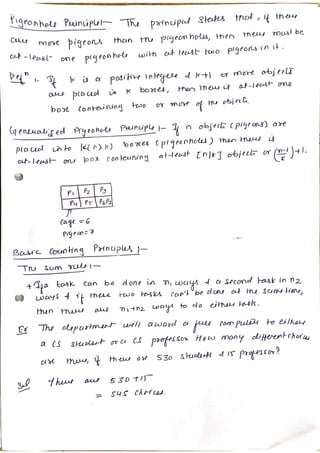 Pigeonhole Principle:- The principal states that, if there
are more pigeons than the pigeonholes, then there must be
at-least one pigeonhole with at least two pigeons in it.
Defn 1. If k is a positive integers & k+1 or more objects
are placed in k boxes, then there is at-least one
box containing two or more of the objects.
Generalized Pigeonhole Principle:- If n objects (pigeons) are
placed into k(n>k) boxes (pigeonholes) then there is
at-least one box containing at-least [n/k] objects or (n-1/k)+1.
P1 P2 P3
P4 P5 P6P7
Cage = 6
Pigeon = 7
Basic Counting Principles:-
The sum rule:-
+ If a task can be done in n1 ways & a second task in n2
ways & if these two tasks can't be done at the same time,
then there are n1+n2 ways to do either task.
Ex The department will award a free computer to either
a CS student or a CS professor How many different choices
are there, if there are 530 students & 15 professor?
Sol There are 530+15
= 545 choices.